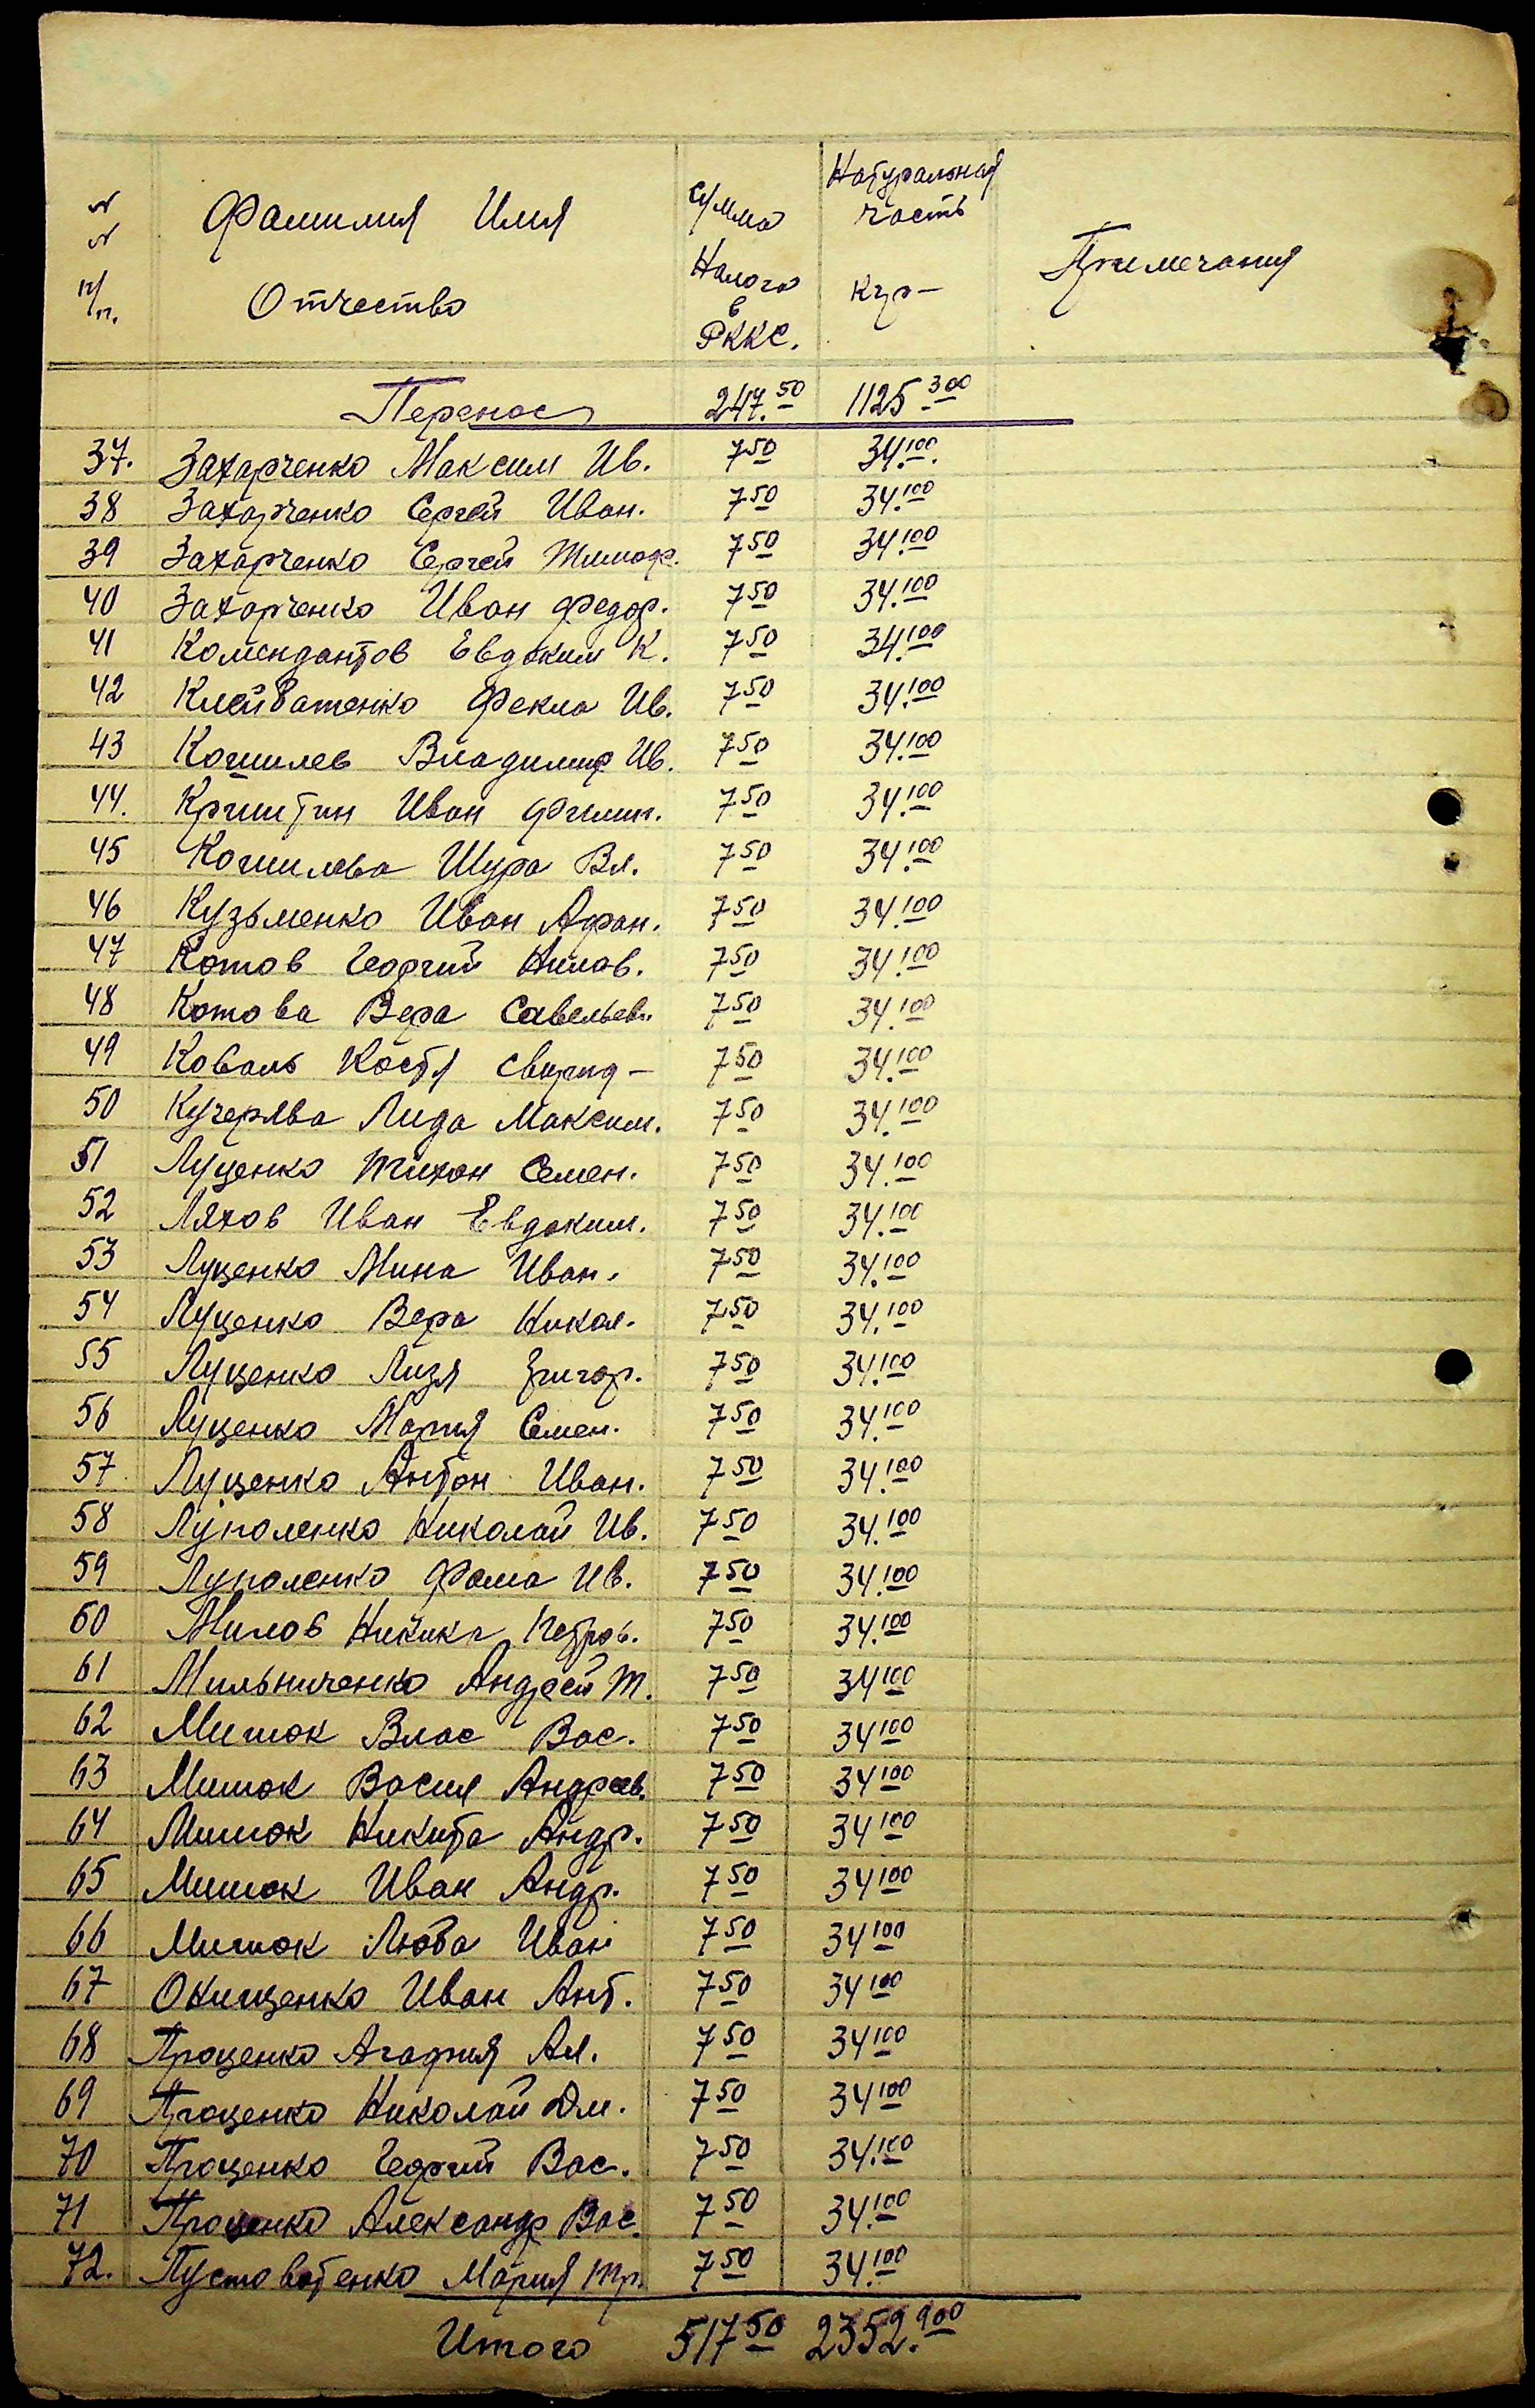 № № п/п. Фамилия Имя Отчество Сумма Налога в РККС. Натуральная часть кгр- Примечания
Перенос 247.50 1125.300
37. Захарченко Максим Ив. 7 50 34.100.
38 Захарченко Сергей Иван. 7 50 34.100
39 Захарченко Сергей Тимоф. 7 50 34.100
40 Захарченко Иван Федор. 7 50 34.100
41 Комендантов Евдоким К. 7 50 34.100
42 Клейватенко Фекла Ив. 7 50 34.100
43 Кошилев Владимир Ив. 7 50 34.100
44. Криштан Иван Филип. 7 50 34.100
45 Кошилева Шура Вл. 7 50 34.100
46 Кузьменко Иван Афан. 7 50 34.100
47 Котов Георгий Нилов. 7 50 34.100
48 Котова Вера Савельев. 7 50 34.100
49 Коваль Костя Свирид- 7 50 34.100
50 Кучерява Лида Максим. 7 50 34.100
51 Луценко Тихон Семен. 7 50 34.100
52 Ляхов Иван Евдоким. 7 50 34.100
53 Луценко Мина Иван. 7 50 34.100
54 Луценко Вера Никол. 7 50 34.100
55 Луценко Лизя Григор. 7 50 34.100
56 Луценко Мария Семен. 7 50 34.100
57 Луценко Антон Иван. 7 50 34.100
58 Луполенко Николай Ив. 7 50 34.100
59 Луполенко Фома Ив. 7 50 34.100
60 Милов Петров. 7 50 34.100
61 Мильниченко Андрей Т. 7 50 34 100
62 Мишок Влас Вас. 7 50 34 100
63 Мишок Васил Андреев. 7 50 34 100
64 Мишок Никита Андр. 7 50 34 100
65 Мишок Иван Андр. 7 50 34 100
66 Мишок Люба Иван 7 50 34 100
67 Онищенко Иван Ант. 7 50 34 100
68 Проценко Агафия Ал. 7 50 34 100
69 Проценко Николай Дм. 7 50 34 100
70 Проценко Георгий Вас. 7 50 34.100
71 Проценко Александр Вас. 7 50 34.100
72. Пустоватенко Мария Тр. 7 50 34.100
Итого 517 50 2352.900